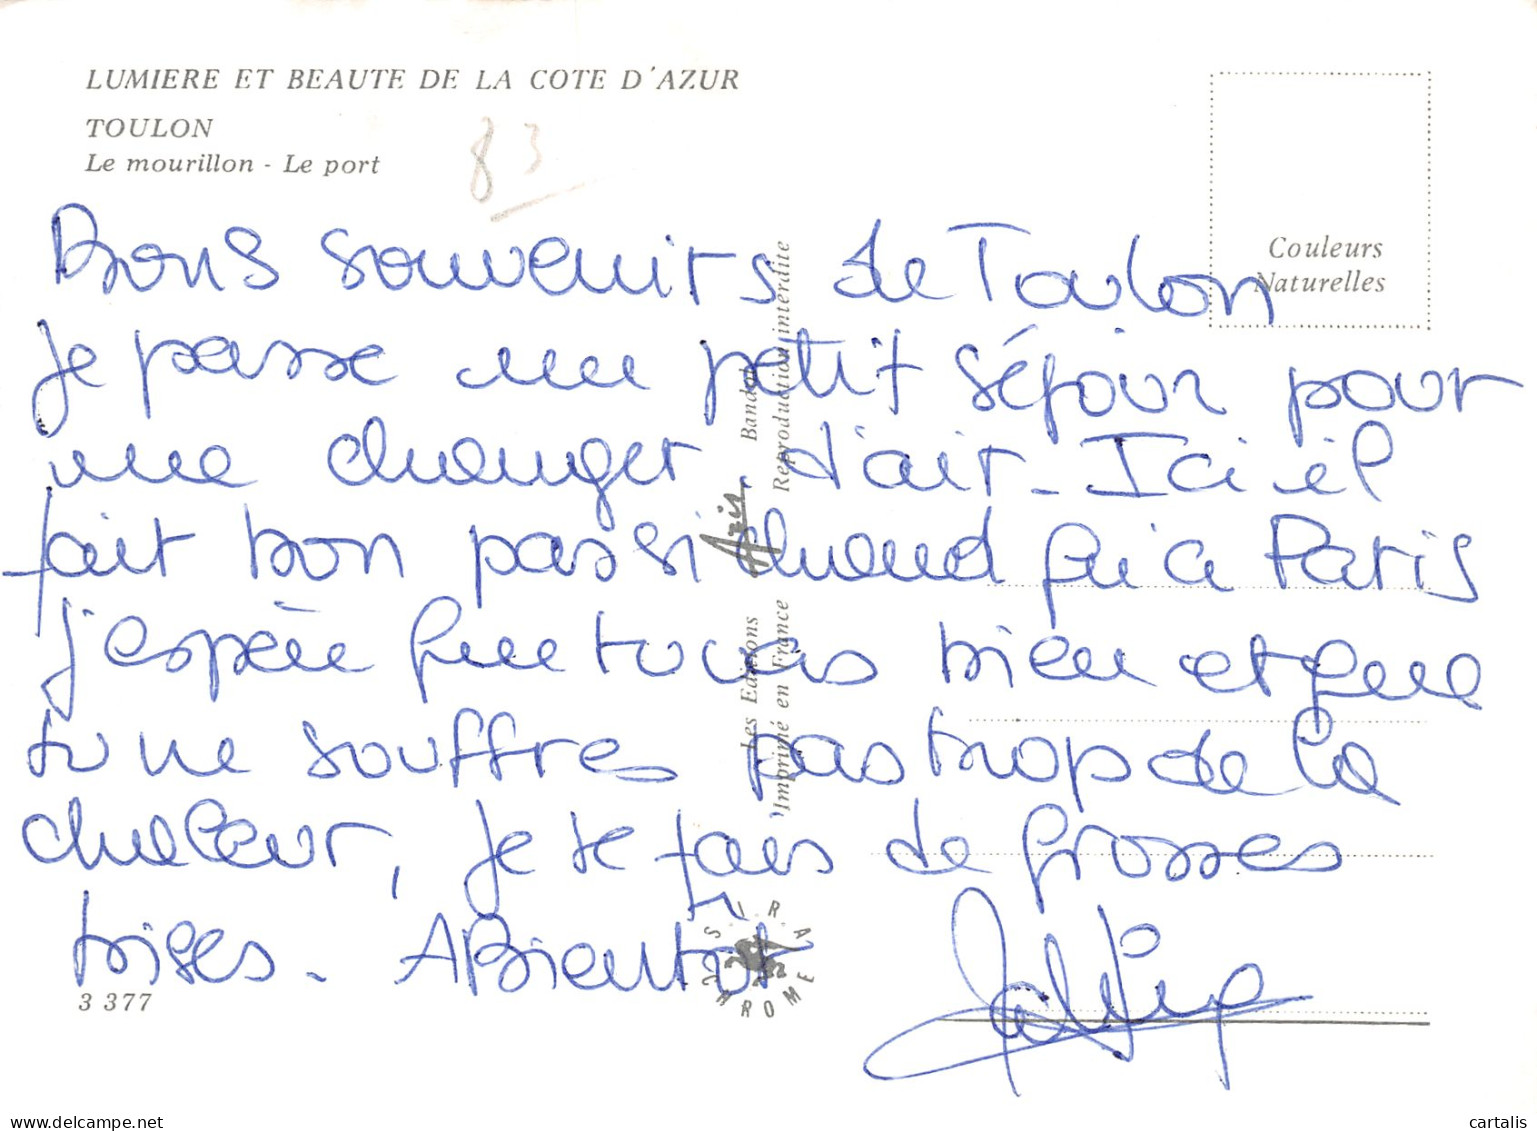 LUMIERE ET BEAUTE DE LA COTE D'AZUR
TOULON
Le mourillon - Le port
83
Couleurs
Naturelles
Bons souvenirs de Toulon
Je passe un petit séjour pour
me changer d'air - Ici il
fait bon passi quand qu'a Paris
j'espère que tu vas bien et que
tu ne souffres pas trop de la
chaleur, je te fais de grosses
bises - A Bientôt
Les Editions Azis Bandol
Imprimé en France Reproduction interdite
3 377
delcampe.net
cartalis